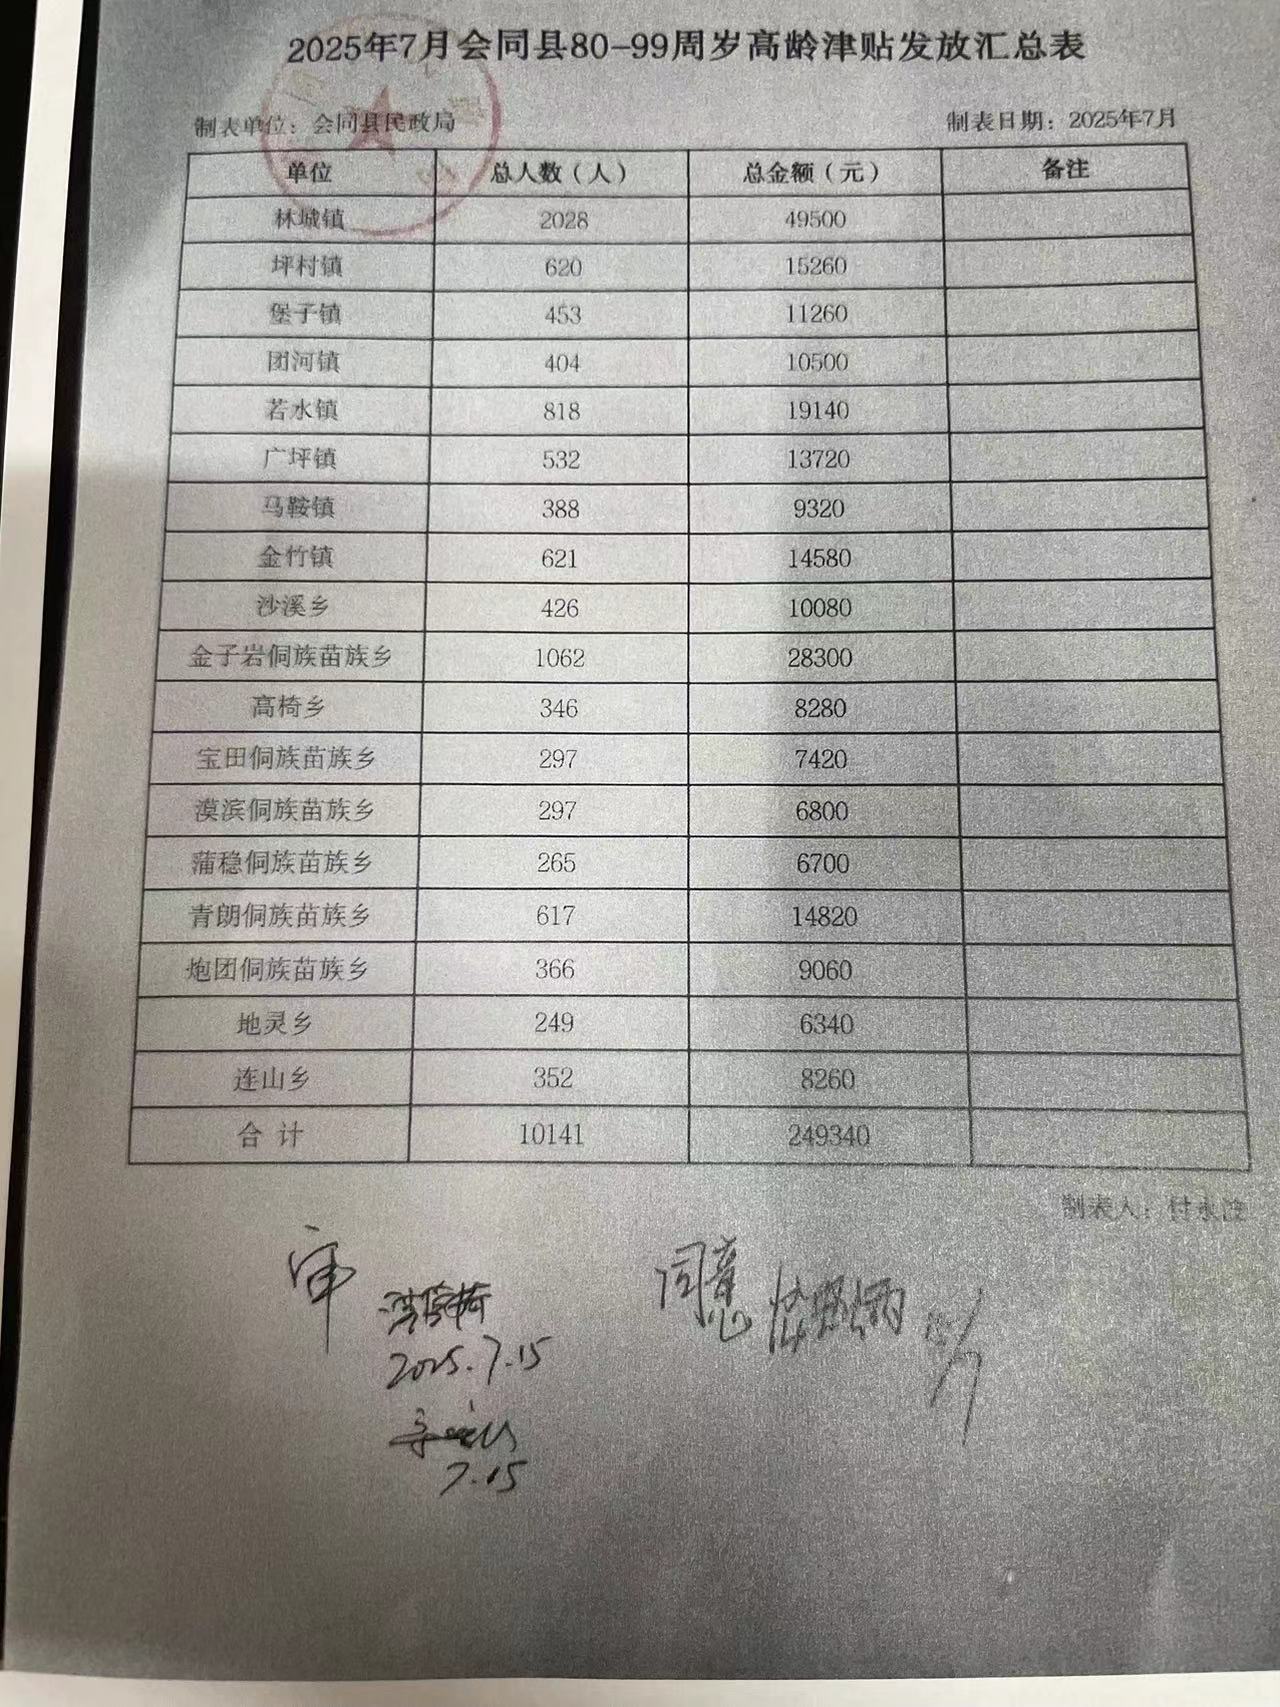 2025年7月会同县80-99周岁高龄津贴发放汇总表
制表单位：会同县民政局 制表日期：2025年7月
单位 总人数（人） 总金额（元） 备注
林城镇 2028 49500
坪村镇 620 15260
堡子镇 453 11260
团河镇 404 10500
若水镇 818 19140
广坪镇 532 13720
马鞍镇 388 9320
金竹镇 621 14580
沙溪乡 426 10080
金子岩侗族苗族乡 1062 28300
高椅乡 346 8280
宝田侗族苗族乡 297 7420
漠滨侗族苗族乡 297 6800
蒲稳侗族苗族乡 265 6700
青朗侗族苗族乡 617 14820
炮团侗族苗族乡 366 9060
地灵乡 249 6340
连山乡 352 8260
合计 10141 249340
制表人：付永
审
同意
2025.7.15
7.15